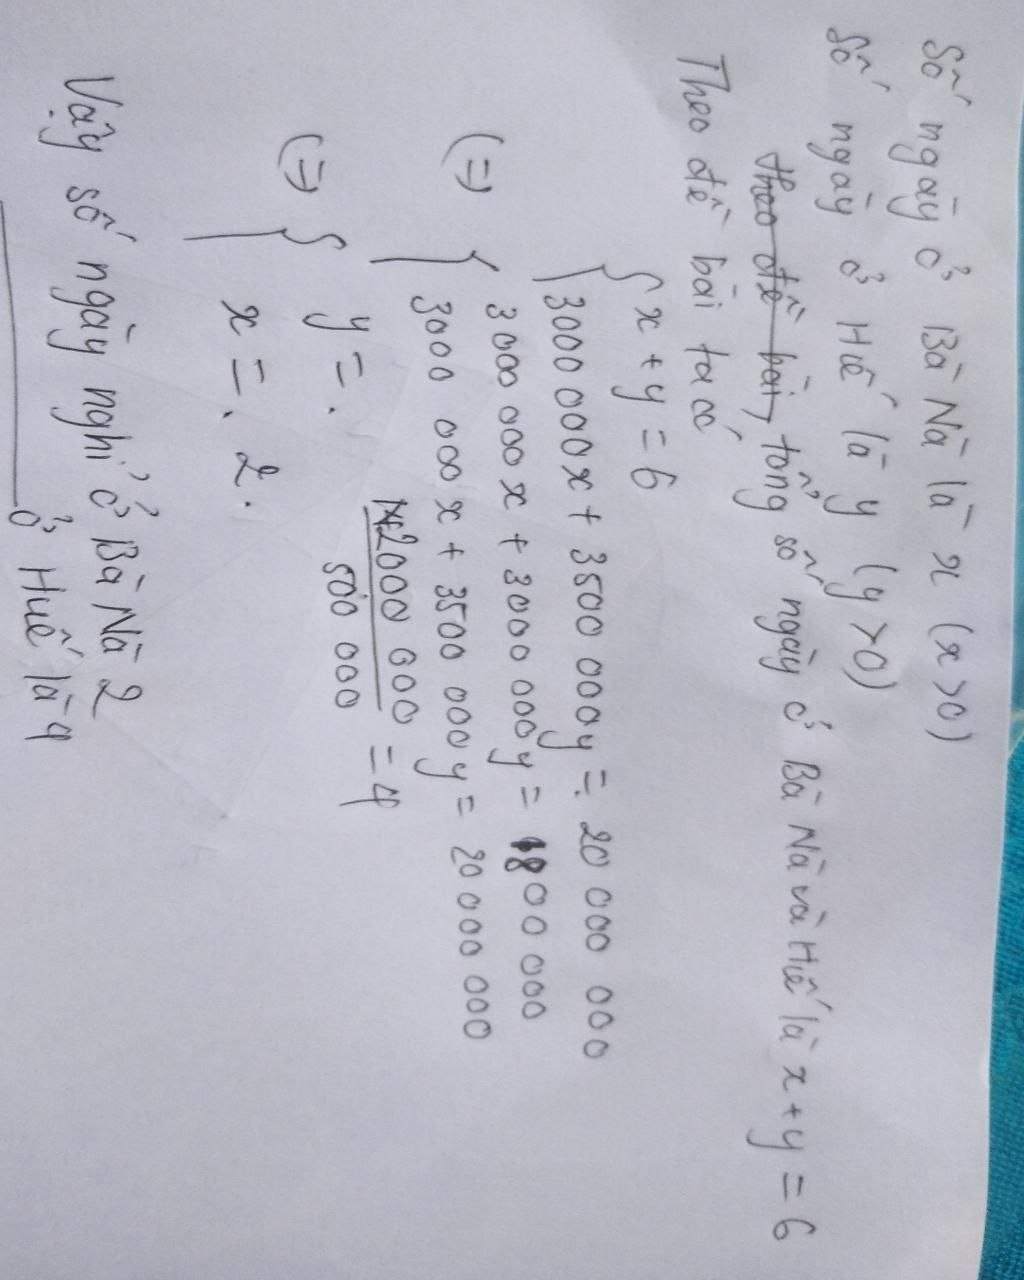 Số ngày ở Bà Nà là x (x>0)
Số ngày ở Huế là y (y>0)
theo đề bài, tổng số ngày ở Bà Nà và Huế là x+y=6
Theo đề bài ta có
{ x + y = 6
3000 000x + 3500 000y = 20 000 000
(=) { 3000 000x + 3000 000y = 1800 000
3000 000x + 3500 000y = 20 000 000
(=) { y = 2000 000 / 500 000 = 4
x = 2.
Vậy số ngày nghỉ ở Bà Nà 2
ở Huế là 4